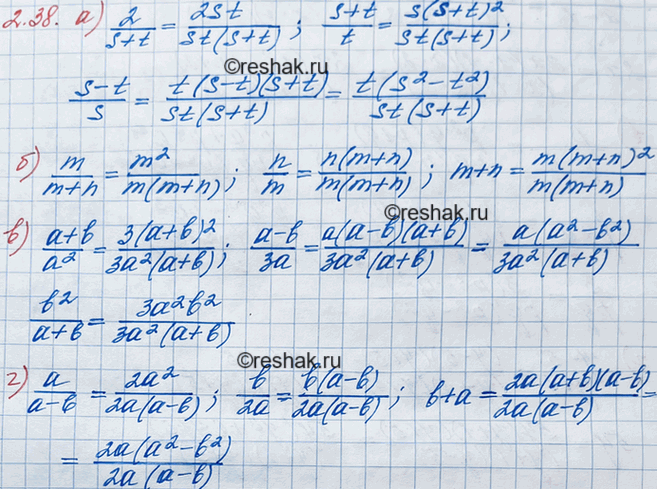 2.38. а) 2/(s+t) = 2st/(st(s+t)); (s+t)/t = s(s+t)²/(st(s+t));
©reshak.ru
(s-t)/s = t(s-t)(s+t)/(st(s+t)) = t(s²-t²)/(st(s+t))
б) m/(m+n) = m²/(m(m+n)); n/m = n(m+n)/(m(m+n)); m+n = m(m+n)²/(m(m+n))
©reshak.ru
в) (a+b)/a² = 3(a+b)²/(3a²(a+b)); (a-b)/3a = a(a-b)(a+b)/(3a²(a+b)) = a(a²-b²)/(3a²(a+b))
b²/(a+b) = 3a²b²/(3a²(a+b))
©reshak.ru
г) a/(a-b) = 2a²/(2a(a-b)); b/2a = b(a-b)/(2a(a-b)); b+a = 2a(a+b)(a-b)/(2a(a-b)) =
= 2a(a²-b²)/(2a(a-b))